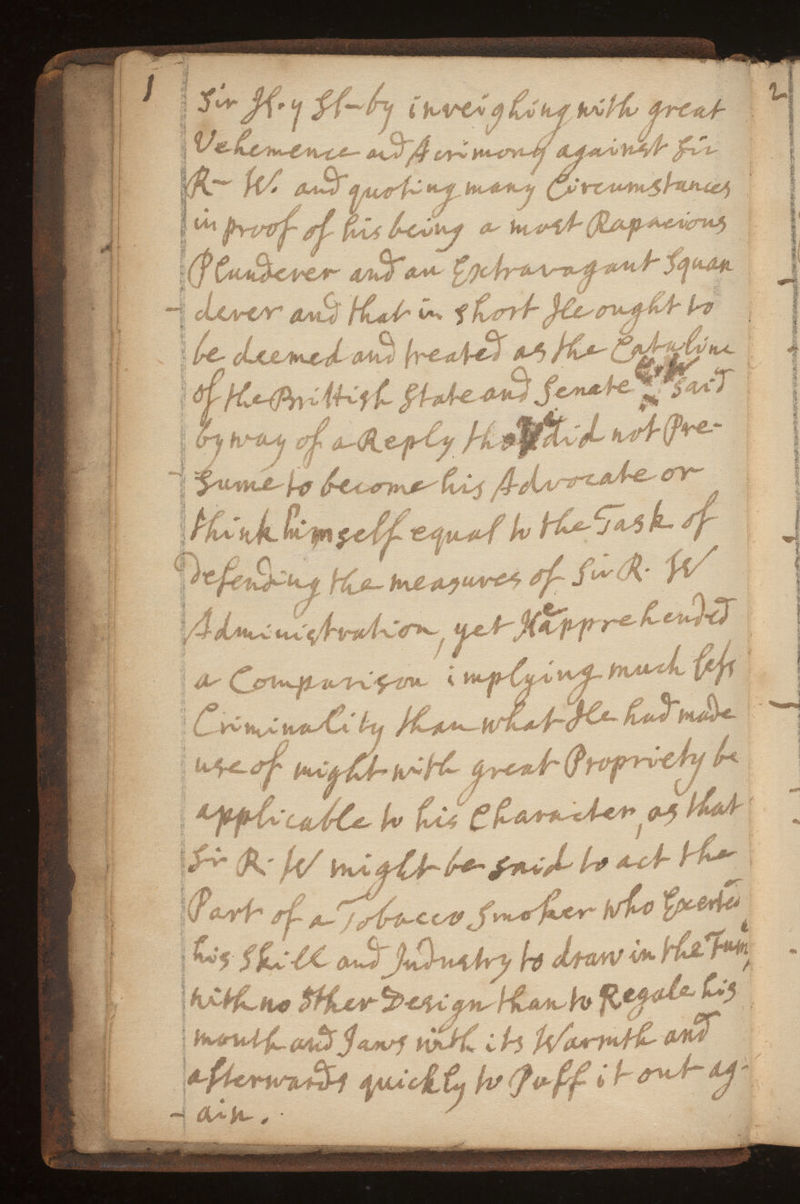 1
Sir H. y Sl-by inveighing with great
Vehemence and Acrimony against Sir
R- W. and quoting many Circumstances
in proof of his being a most Rapacious
Plunderer and an Extravagant Squan
derer and that in short He ought to
be deemed and treated as the Cataline
of the Brittish State and Senate said
by way of a Reply tho' did not Pre-
sume to become his Advocate or
think himself equal to the Task of
defending the measures of Sir R. W
Administration, yet He apprehended
a Comparison implying much less
Criminality than what He had made
use of might with great Propriety be
applicable to his Character, as that
Sir R. W might be said to act the
Part of a Tobacco Smoker who Exerted
his Skill and Industry to draw in the Fume,
with no Other Design than to Regale his
mouth and Jaws with its Warmth and
afterwards quickly to Puff it out ag-
ain.
2